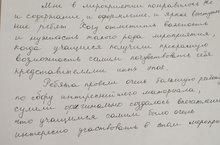 Мне в мероприятии понравилось всё
и содержание, и оформление, и яркое выступле-
ние ребят. Хочу отметить важность
и нужность такого рода мероприятия,
когда учащиеся получили прекрасную
возможность самим почувствовать себя
представителями иных эпох.
Ребята провели очень большую работу
по сбору интереснейшего материала,
сумели оригинально создалось впечатление
что учащимся самим было очень
интересно участвовать в этом мероприя